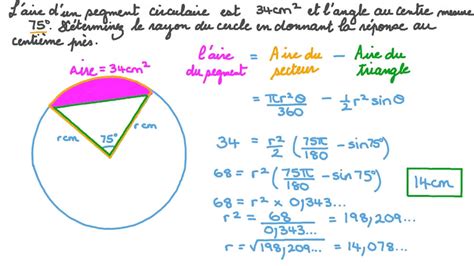 L'aire d'un segment circulaire est 34cm² et l'angle au centre mesure
75°. Déterminez le rayon du cercle en donnant la réponse au
centième près.
l'aire du segment = Aire du secteur − Aire du triangle
Aire = 34cm²
= πr²θ/360 − 1/2 r² sinθ
r cm
75°
r cm
34 = r²/2 (75π/180 − sin75°)
68 = r² (75π/180 − sin 75°)
68 = r² × 0,343...
r² = 68/0,343... = 198,209...
r = √198,209... = 14,078...
14cm